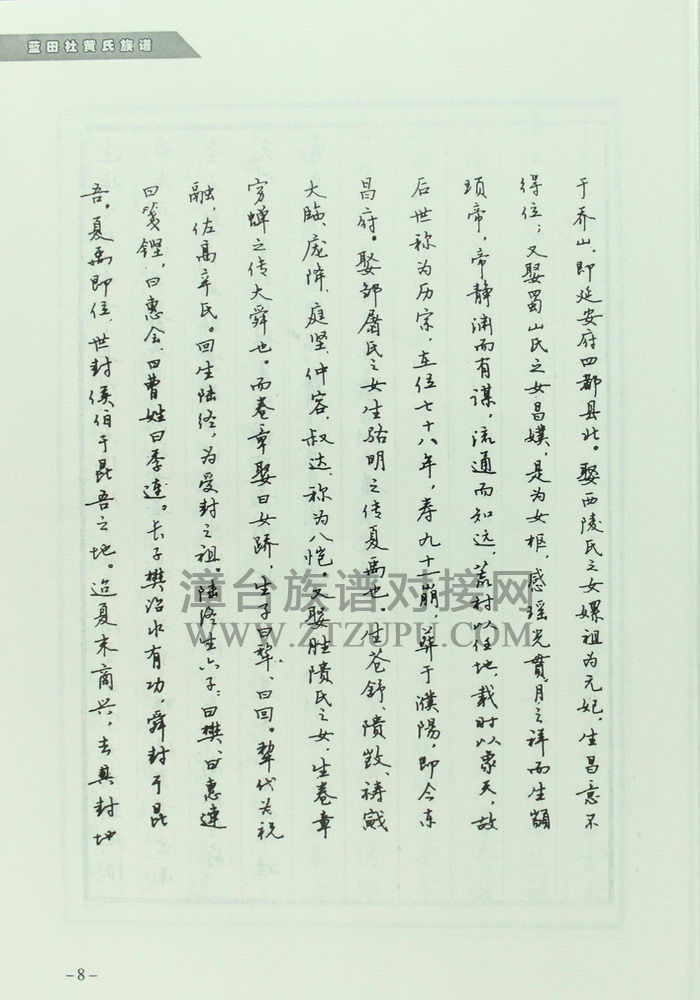 蓝田杜黄氏族谱
于乔山,即延安府四都县北。娶西陵氏之女嫘祖为元妃,生昌意不
得位;又娶蜀山氏之女昌嫫,是为女枢,感瑶光贯月之祥而生颛
顼帝,帝静渊而有谋,流通而知远,养材以任地,载时以象天,故
后世称为历宗,在位七十八年,寿九十一崩,葬于濮陽,即今东
昌府。娶邹屠氏之女生骆明之传夏禹也,生苍舒、隤敳、梼戭
大临、庞降、庭坚、仲容、叔达,称为八恺。又娶胜隤氏之女,生卷章
穷蝉之传大舜也。而卷章娶曰女𫏋,生子曰犂、曰回。犂代为祝
融,佐高辛氏。回生陆终,为受封之祖。陆终生六子:曰樊、曰惠连
曰篯铿,曰惠会、曰曹姓曰季连。长子樊治水有功,舜封于昆
吾。夏禹即位,世封侯伯于昆吾之地。迨夏末商兴,去其封地
漳台族谱对接网
WWW.ZTZUPU.COM
-8-